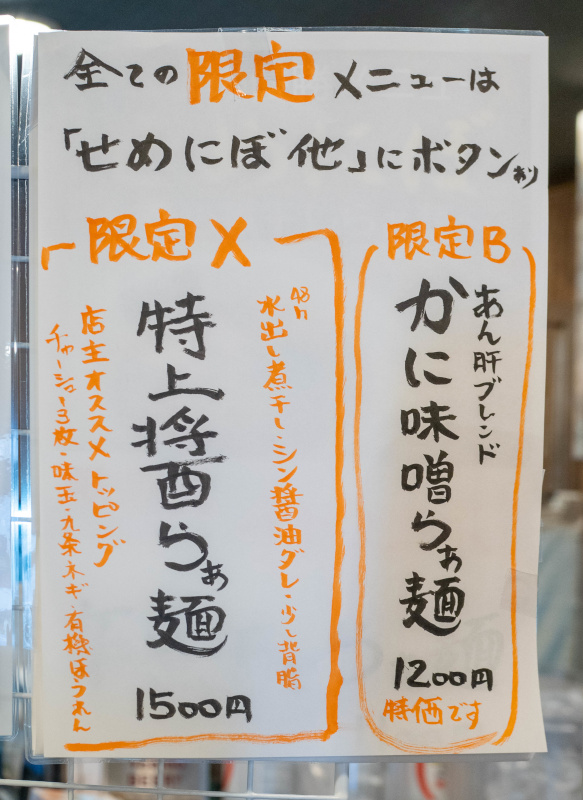 全ての限定メニューは
「せめにぼ他」にボタンあり
限定B
あん肝ブレンド
かに味噌らぁ麺
1200円
特価です
限定X
48h
水出し煮干し・シン醤油ダレ・少し背脂
特上醤らぁ麺
1500円
店主オススメトッピング
チャーシュー3枚・味玉・九条ネギ・有機ほうれん